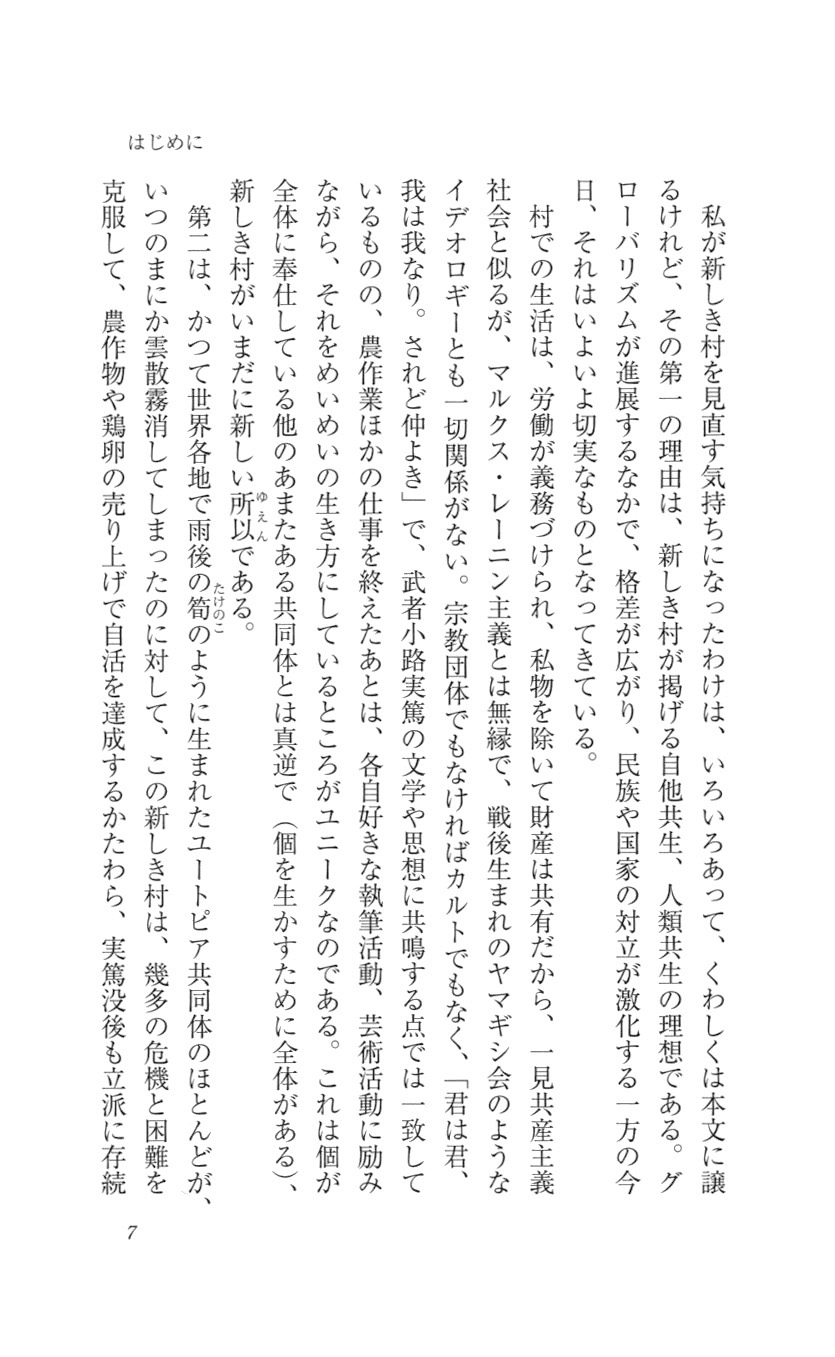 はじめに
私が新しき村を見直す気持ちになったわけは、いろいろあって、くわしくは本文に譲
るけれど、その第一の理由は、新しき村が掲げる自他共生、人類共生の理想である。グ
ローバリズムが進展するなかで、格差が広がり、民族や国家の対立が激化する一方の今
日、それはいよいよ切実なものとなってきている。
村での生活は、労働が義務づけられ、私物を除いて財産は共有だから、一見共産主義
社会と似るが、マルクス・レーニン主義とは無縁で、戦後生まれのヤマギシ会のような
イデオロギーとも一切関係がない。宗教団体でもなければカルトでもなく、「君は君、
我は我なり。されど仲よき」で、武者小路実篤の文学や思想に共鳴する点では一致して
いるものの、農作業ほかの仕事を終えたあとは、各自好きな執筆活動、芸術活動に励み
ながら、それをめいめいの生き方にしているところがユニークなのである。これは個が
全体に奉仕している他のあまたある共同体とは真逆で（個を生かすために全体がある）、
新しき村がいまだに新しい所以ゆえんである。
第二は、かつて世界各地で雨後の筍たけのこのように生まれたユートピア共同体のほとんどが、
いつのまにか雲散霧消してしまったのに対して、この新しき村は、幾多の危機と困難を
克服して、農作物や鶏卵の売り上げで自活を達成するかたわら、実篤没後も立派に存続
7